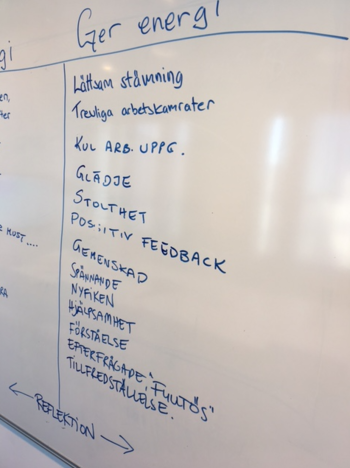 Ger energi
Lättsam stämning
Trevliga arbetskamrater
KUL ARB. UPPG.
GLÄDJE
STOLTHET
POSITIV FEEDBACK
GEMENSKAD
SPÄNNANDE
NYFIKEN
HJÄLPSAMHET
FÖRSTÅELSE
EFTERFRÅGADE,
TILLFREDSTÄLLELSE.
← REFLEKTION →
MUST....